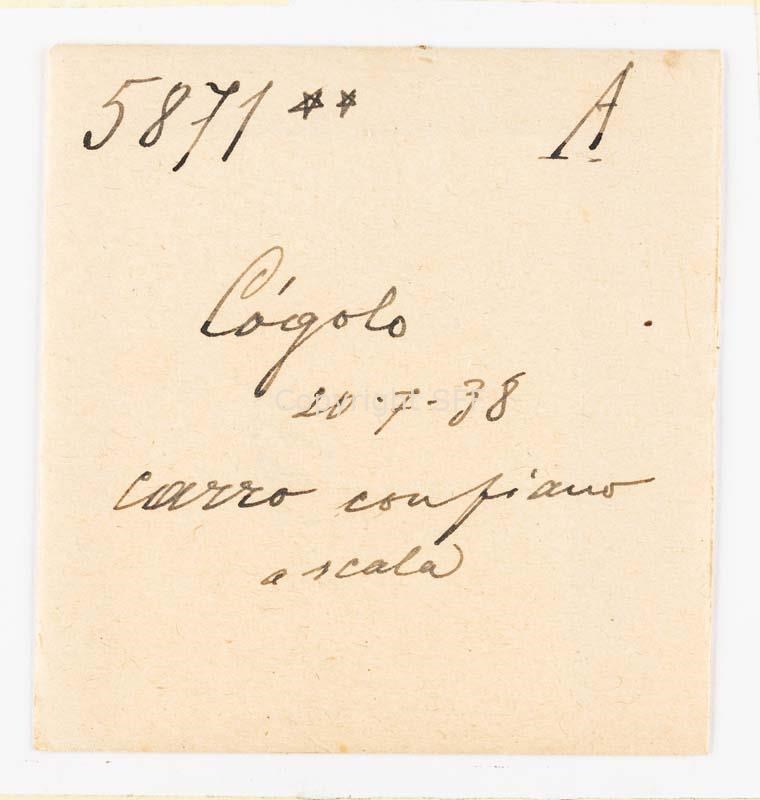 5871** A
Cógolo
20·7·38
carro con piano
a scala